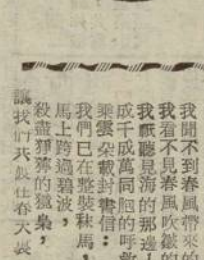 我聞不到春風帶來的
我看不見春風吹皺的
我祇聽見海的那邊，
成千成萬同胞的呼救
乘雲朵載封書信：
我們已在整裝秣馬，
馬上跨過碧波，
殺盡猙獰的獍梟，
讓我們共飲在春天裏